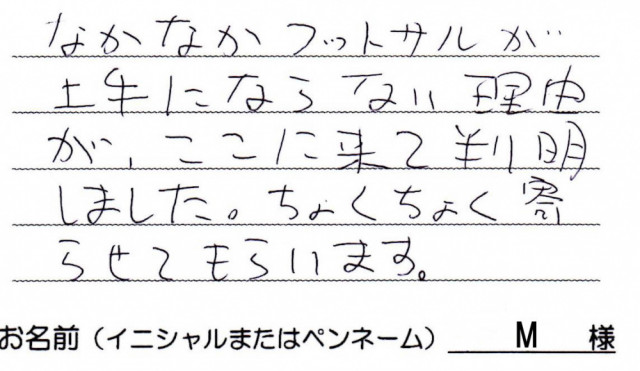 なかなかフットサルが
上手にならない理由
が、ここに来て判明
しました。ちょくちょく寄
らせてもらいます。
お名前（イニシャルまたはペンネーム） M 様